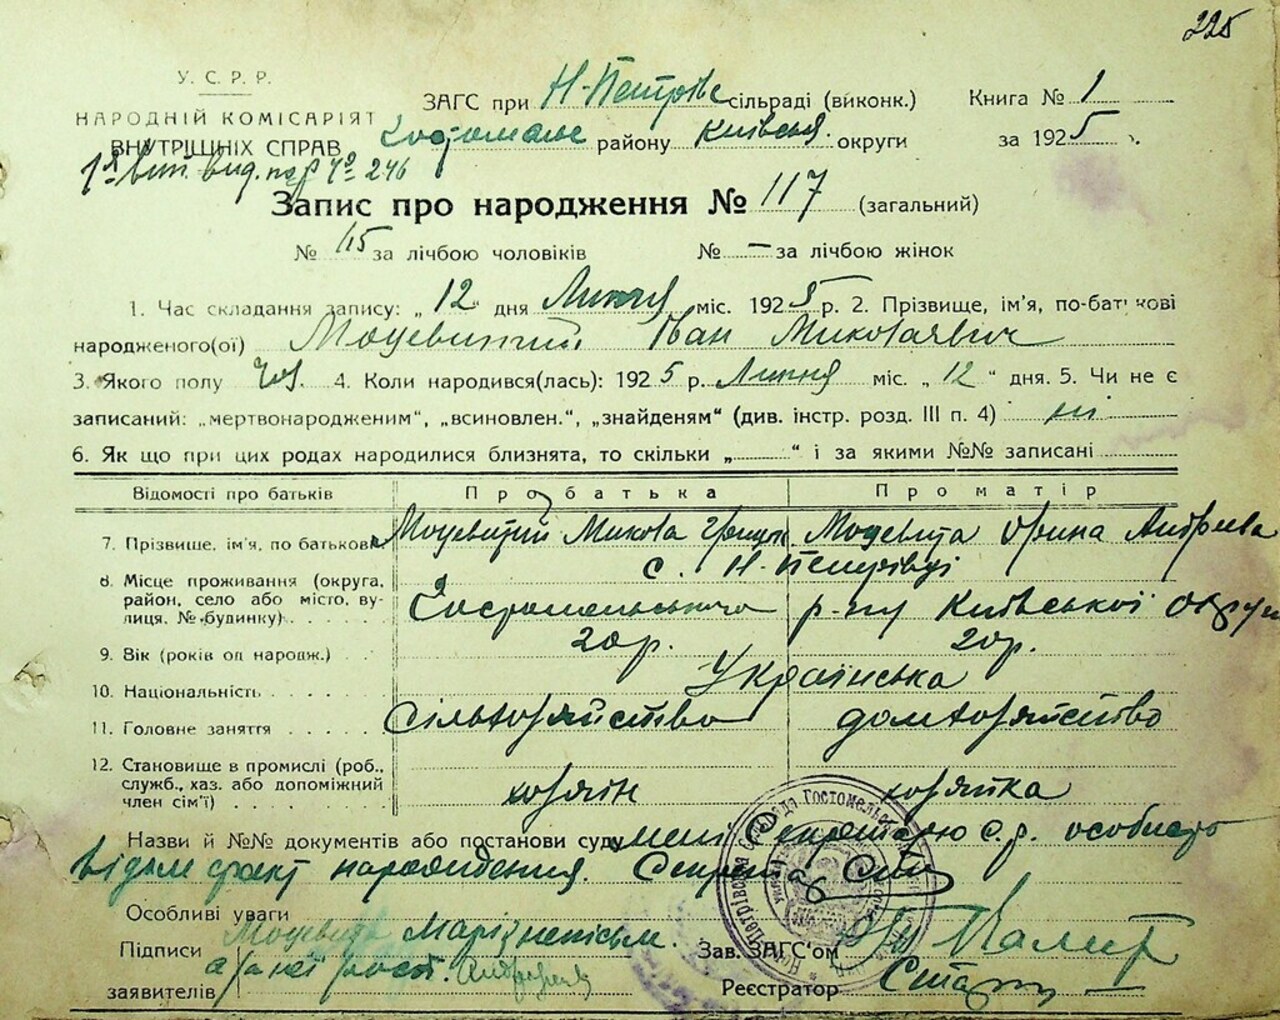 225
У. С. Р. Р.
НАРОДНІЙ КОМІСАРІЯТ
ВНУТРІШНІХ СПРАВ
ЗАГС при Н-Петрівс сільраді (виконк.)
району Київськ. округи
Книга № 1
за 1925
1й вит. вид. 246
Запис про народження № 117 (загальний)
№ 115 за лічбою чоловіків № — за лічбою жінок
1. Час складання запису: „12“ дня Липня міс. 1925 р. 2. Прізвище, ім'я, по-батькові
народженого(ої) Іван Миколаєвич
3. Якого полу чол. 4. Коли народився(лась): 1925 р. Липня міс. „12“ дня. 5. Чи не є
записаний: „мертвонародженим“, „всиновлен.“, „знайденям“ (див. інстр. розд. III п. 4) ні
6. Як що при цих родах народилися близнята, то скільки „ “ і за якими №№ записані
Відомості про батьків Про батька Про матір
7. Прізвище, ім'я, по батькові Микола Орина Андреева
с. Н-Петрівці
8. Місце проживання (округа, район, село або місто, вулиця, № будинку) Гостомельського р-ну Київської округи
9. Вік (років од народж.) 20 р. 20 р.
10. Національність Українська
11. Головне заняття сільхозяйство домхозяйство
12. Становище в промислі (роб., служб., хаз. або допоміжний член сім'ї) хозяїн хозяйка
Назви й №№ документів або постанови суду мені Секретарю с.р. особисто
відом факт народження. Секретар
Особливі уваги
Підписи
заявителів
Зав. ЗАГС'ом
Реєстратор